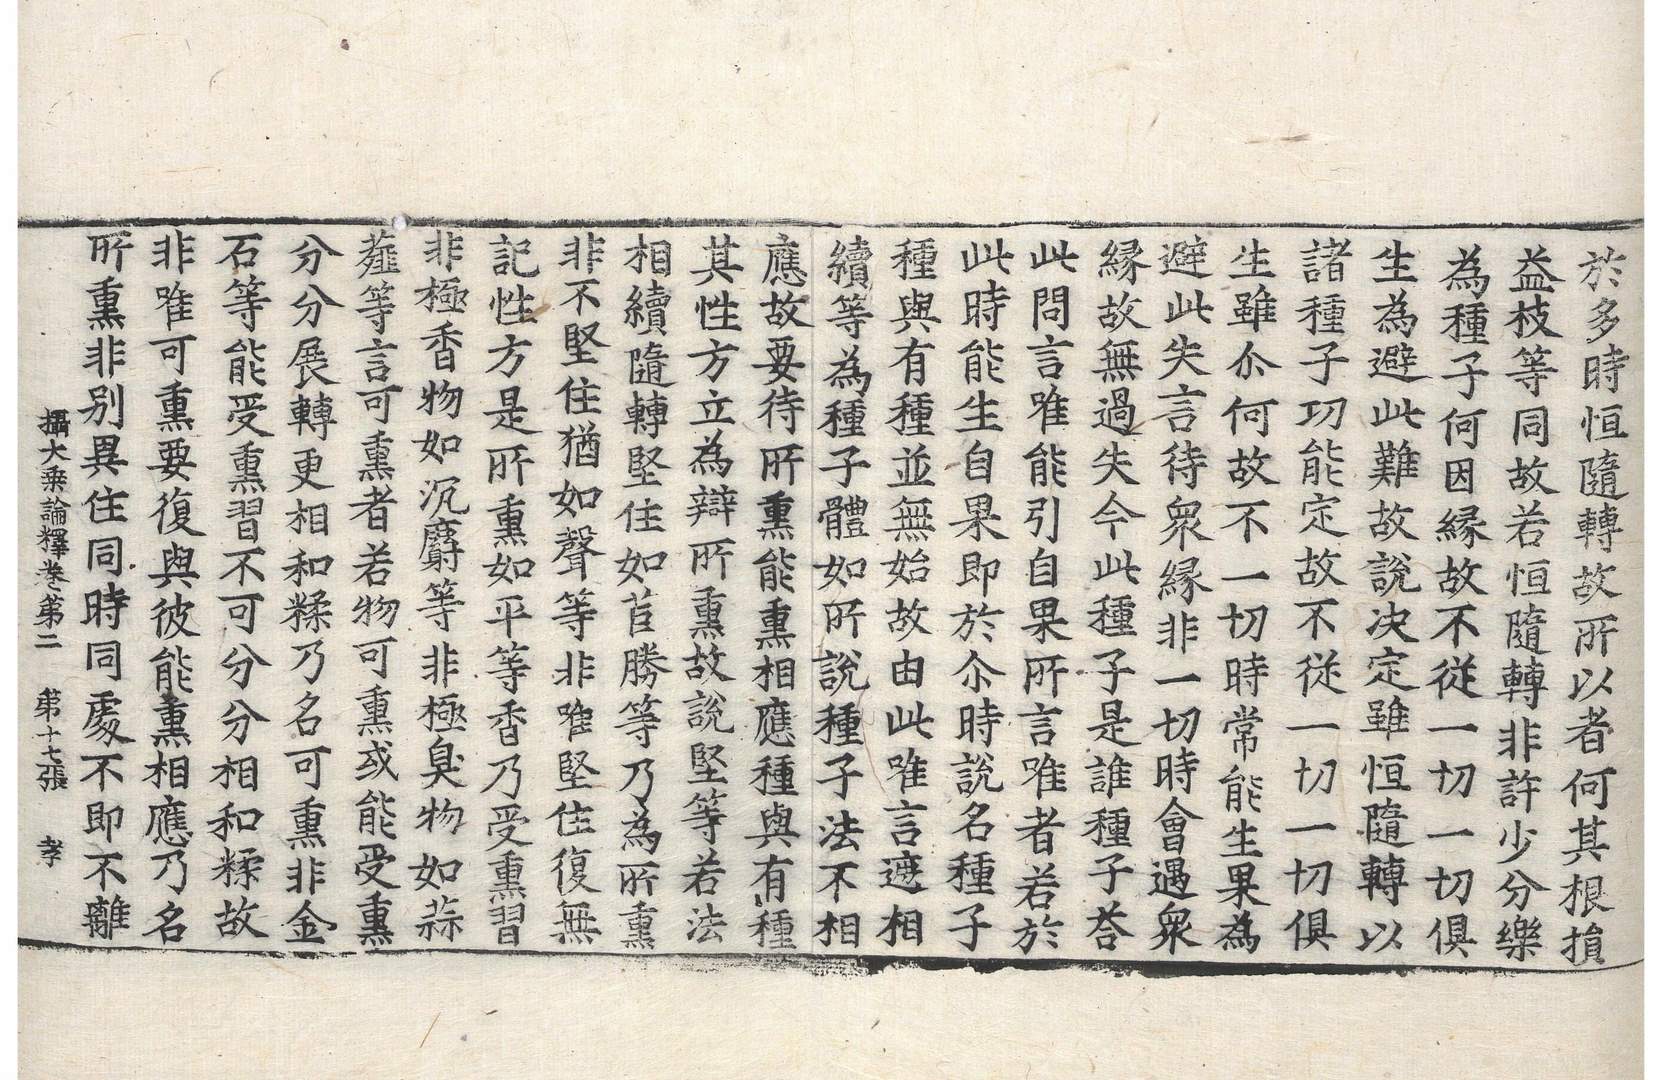 於多時恒隨轉故所以者何其根損
益枝等同故若恒隨轉非許少分樂
為種子何因縁故不從一切一切俱
生為避此難故說決定雖恒隨轉以
諸種子功能定故不從一切一切俱
生雖尒何故不一切時常能生果為
避此失言待衆縁非一切時會遇衆
縁故無過失今此種子是誰種子荅
此問言唯能引自果所言唯者若於
此時能生自果即於尒時說名種子
種與有種並無始故由此唯言遮相
續等為種子體如所說種子法不相
應故要待所熏能熏相應種與有種
其性方立為辯所熏故說堅等若法
相續隨轉堅住如苣勝等乃為所熏
非不堅住猶如聲等非唯堅住復無
記性方是所熏如平等香乃受熏習
非極香物如沉麝等非極臭物如蒜
薤等言可熏者若物可熏或能受熏
分分展轉更相和糅乃名可熏非金
石等能受熏習不可分分相和糅故
非唯可熏要復與彼能熏相應乃名
所熏非別異住同時同處不即不離
攝大乘論釋卷第二　第十七張　孝